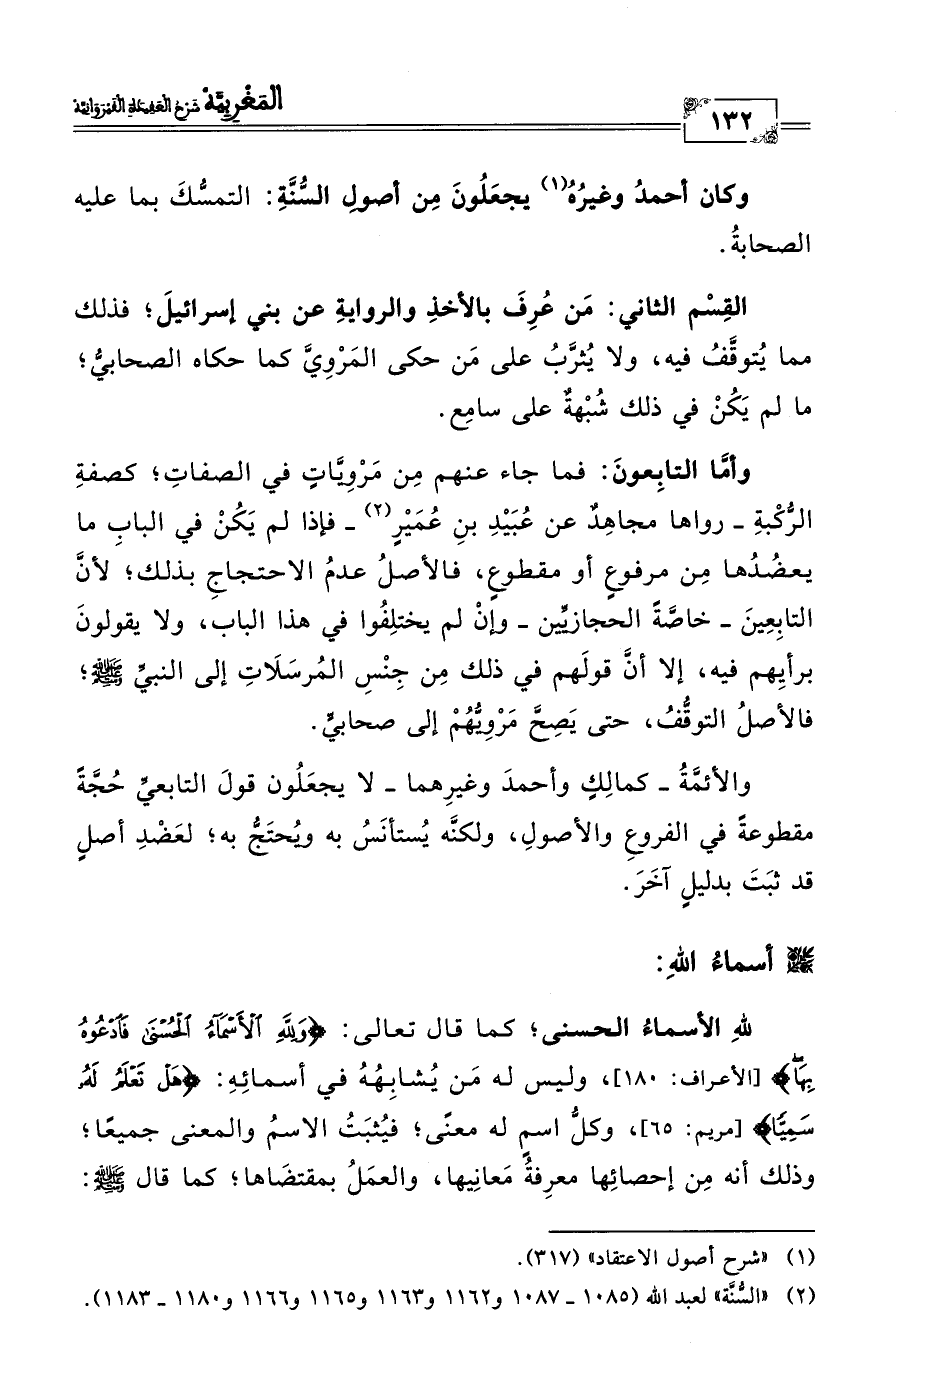 ١٣٢
المَغْرِبِيَّة شَرْحُ العَقِيدَةِ القَيْرَوَانِيَّة
وكان أحمدُ وغيرُهُ(١) يجعَلُونَ مِن أصولِ السُّنَّةِ: التمسُّكَ بما عليه
الصحابةُ.
القِسْم الثاني: مَن عُرِفَ بالأخذِ والروايةِ عن بني إسرائيلَ؛ فذلك
مما يُتوقَّفُ فيه، ولا يُثرَّبُ على مَن حكى المَرْوِيَّ كما حكاه الصحابيُّ؛
ما لم يَكُنْ في ذلك شُبْهةٌ على سامِعٍ.
وأمَّا التابِعونَ: فما جاء عنهم مِن مَرْوِيَّاتٍ في الصفاتِ؛ كصفةِ
الرُّكْبةِ ـ رواها مجاهِدٌ عن عُبَيْدِ بنِ عُمَيْرٍ(٢) ـ فإذا لم يَكُنْ في البابِ ما
يعضُدُها مِن مرفوعٍ أو مقطوعٍ، فالأصلُ عدمُ الاحتجاجِ بذلك؛ لأنَّ
التابِعِينَ ـ خاصَّةً الحجازيِّين ـ وإنْ لم يختلِفُوا في هذا الباب، ولا يقولونَ
برأيِهم فيه، إلا أنَّ قولَهم في ذلك مِن جِنْسِ المُرسَلَاتِ إلى النبيِّ ﷺ؛
فالأصلُ التوقُّفُ، حتى يَصِحَّ مَرْوِيُّهُمْ إلى صحابيٍّ.
والأئمَّةُ ـ كمالِكٍ وأحمدَ وغيرِهما ـ لا يجعَلُون قولَ التابعيِّ حُجَّةً
مقطوعةً في الفروعِ والأصولِ، ولكنَّه يُستأنَسُ به ويُحتَجُّ به؛ لعَضْدِ أصلٍ
قد ثبَتَ بدليلٍ آخَرَ.
أسماءُ اللهِ:
للهِ الأسماءُ الحسنى؛ كما قال تعالى: ﴿وَلِلَّهِ الْأَسْمَآءُ الْحُسْنَىٰ فَادْعُوهُ
بِهَا﴾ [الأعراف: ١٨٠]، وليس له مَن يُشابِهُهُ في أسمائِهِ: ﴿هَلْ تَعْلَمُ لَهُۥ
سَمِيًّا﴾ [مريم: ٦٥]، وكلُّ اسمٍ له معنًى؛ فيُثبَتُ الاسمُ والمعنى جميعًا؛
وذلك أنه مِن إحصائِها معرِفةُ مَعانِيها، والعمَلُ بمقتضَاها؛ كما قال ﷺ:
(١) «شرح أصول الاعتقاد» (٣١٧).
(٢) «السُّنَّة» لعبد الله (١٠٨٥ ـ ١٠٨٧ و١١٦٢ و١١٦٣ و١١٦٥ و١١٦٦ و١١٨٠ ـ ١١٨٣).